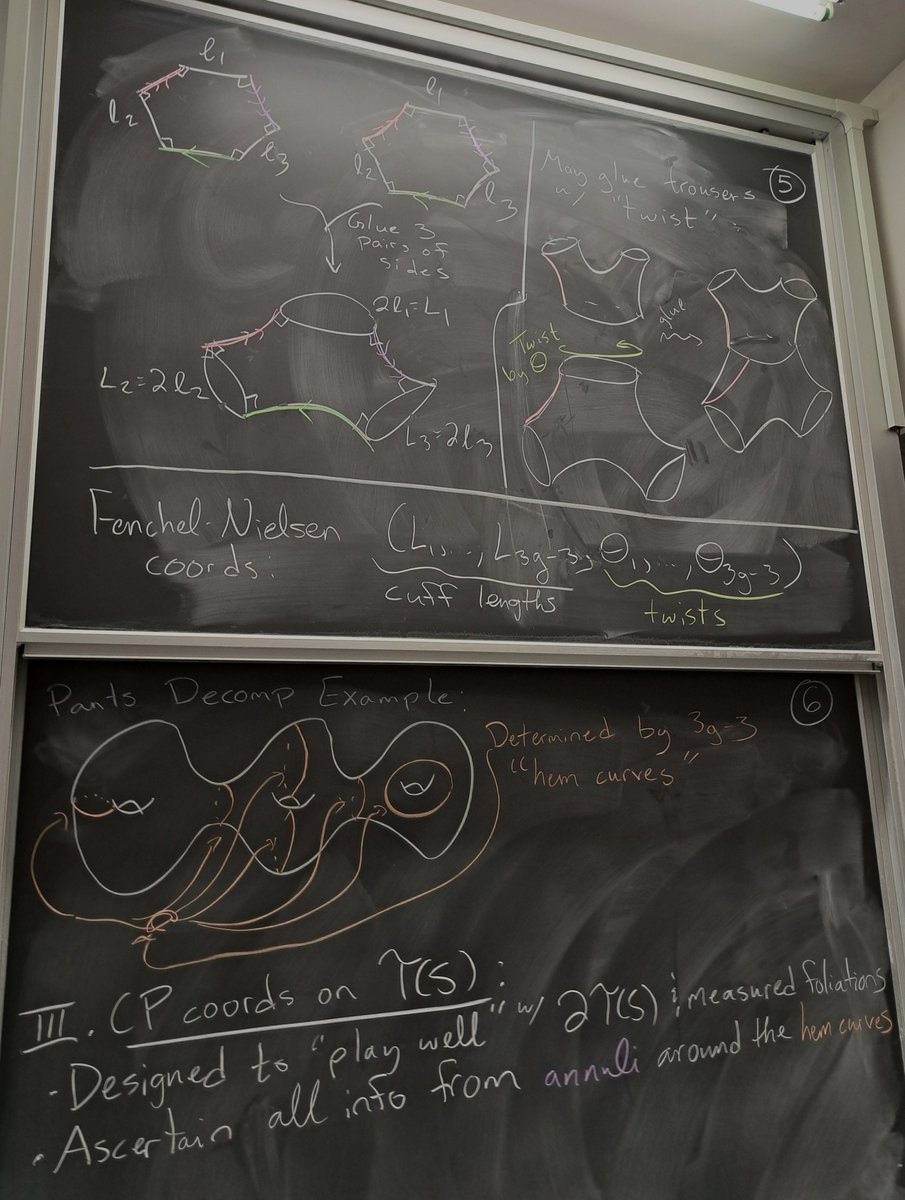 ⑤
l₁
l₂
l₃
l₁
l₂
l₃
Glue 3
pairs of
sides
2l₁=L₁
L₂=2l₂
L₃=2l₃
May glue trousers
w/ "twist":
Twist
by Θ
glue
Fenchel-Nielsen
coords:
(L₁,..., L₃g₋₃, Θ₁,..., Θ₃g₋₃)
cuff lengths
twists
⑥
Pants Decomp Example:
Determined by 3g-3
"hem curves"
III. CP coords on T(S):
- Designed to "play well" w/ ∂T(S) ; measured foliations
- Ascertain all info from annuli around the hem curves